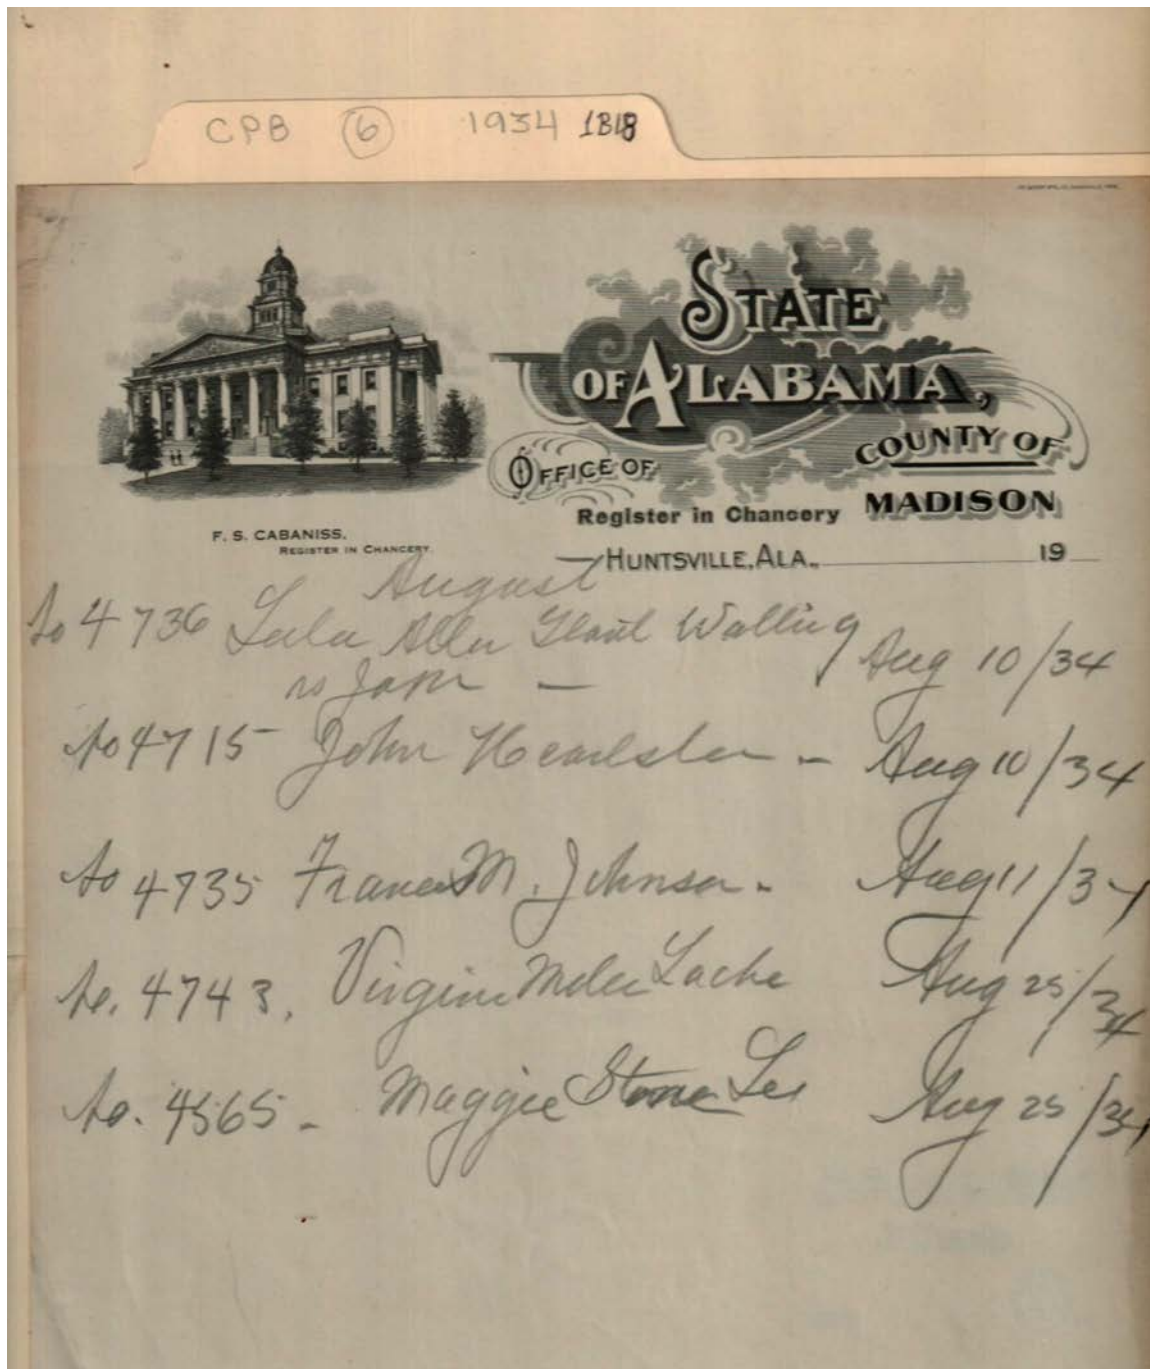 CPB 6 1934 1B18
STATE
OF ALABAMA,
COUNTY OF
OFFICE OF
Register in Chancery MADISON
F. S. CABANISS,
REGISTER IN CHANCERY.
HUNTSVILLE, ALA., 19
August
to 4736 Lula Allen Walling Aug 10/34
vs
to 4715 John Aug 10/34
to 4735 Frances M. Johnson. Aug 11/34
to. 4743. Virginia Aug 25/34
to. 4565 - Maggie Stone Lee Aug 25/34